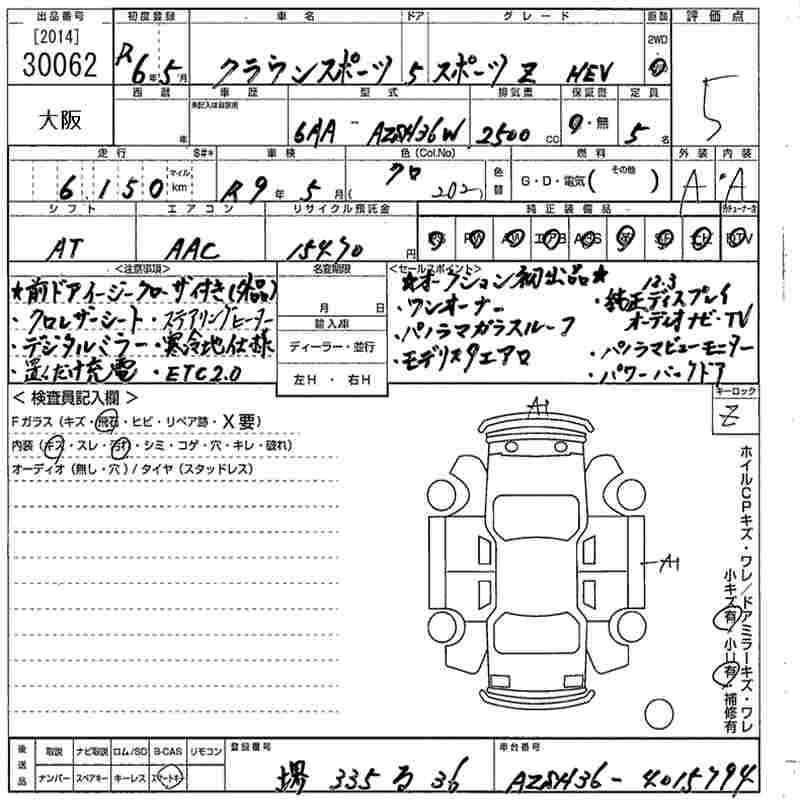 出品番号 初度登録 車名 ドア グレード 駆動 評価点
[2014]
30062
R 6年 5月 クラウンスポーツ 5 スポーツ Z HEV 2WD 5
大阪
西暦 車歴 型式 排気量 保証書 定員
年 未記入は自家用 6AA - AZSH36W 2500 CC 有・無 5名
走行 S#* 車検 色(Col.No) 燃料 外装 内装
6,150 マイル km R9年 5月 クロ (202) 色替 G・D・電気( その他 ) A A
シフト エアコン リサイクル預託金 純正装備品
AT AAC 15470円 PS PW AW エアB ABS 革 SR ナビ TV
<注意事項> 名変期限 <セールスポイント>
★前ドアイージークローザ付き(外品)
・クロレザーシート・ステアリングヒーター
・デジタルミラー・寒冷地仕様
・置くだけ充電・ETC2.0
月 日
輸入車
ディーラー・並行
左H・右H
★オークション初出品★
・ワンオーナー
・パノラマガラスルーフ
・モデリスタエアロ
12.3
・純正ディスプレイ
オーディオナビ・TV
・パノラマビューモニター
・パワーバックドア
<検査員記入欄>
Fガラス(キズ・飛石・ヒビ・リペア跡・X要)
内装(キズ・スレ・汚れ・シミ・コゲ・穴・キレ・破れ)
オーディオ(無し・穴)/タイヤ(スタッドレス)
キーロック
Z
A1
A1
ホイルCPキズ・ワレ/ドアミラーキズ・ワレ
小キズ有/小凹有・補修有
後送品 取説 ナビ取説 ロム/SD B-CAS リモコン 登録番号 車台番号
ナンバー スペアキー キーレス スマートキー 堺 335 る 36 AZSH36-4015794